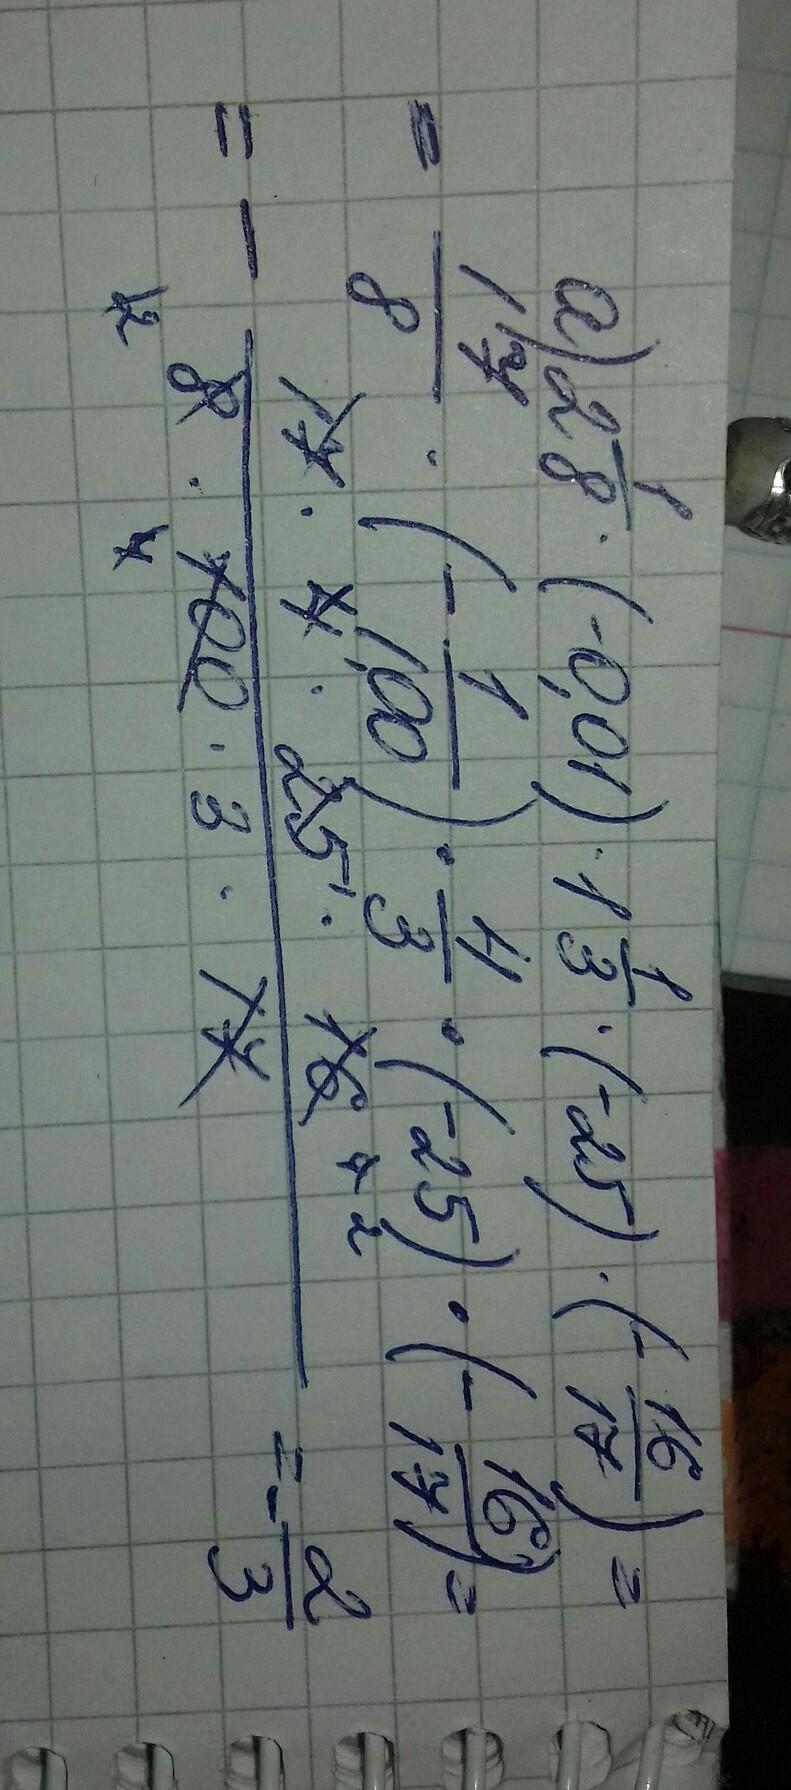 а) 2 1/8 · (-0,01) · 1 1/3 · (-25) · (- 16/17) =
= 17/8 · (- 1/100) · 4/3 · (-25) · (- 16/17) =
= - 17 · 4 · 25 · 16 4 2 / 8 · 100 · 3 · 17 = - 2/3
2 4